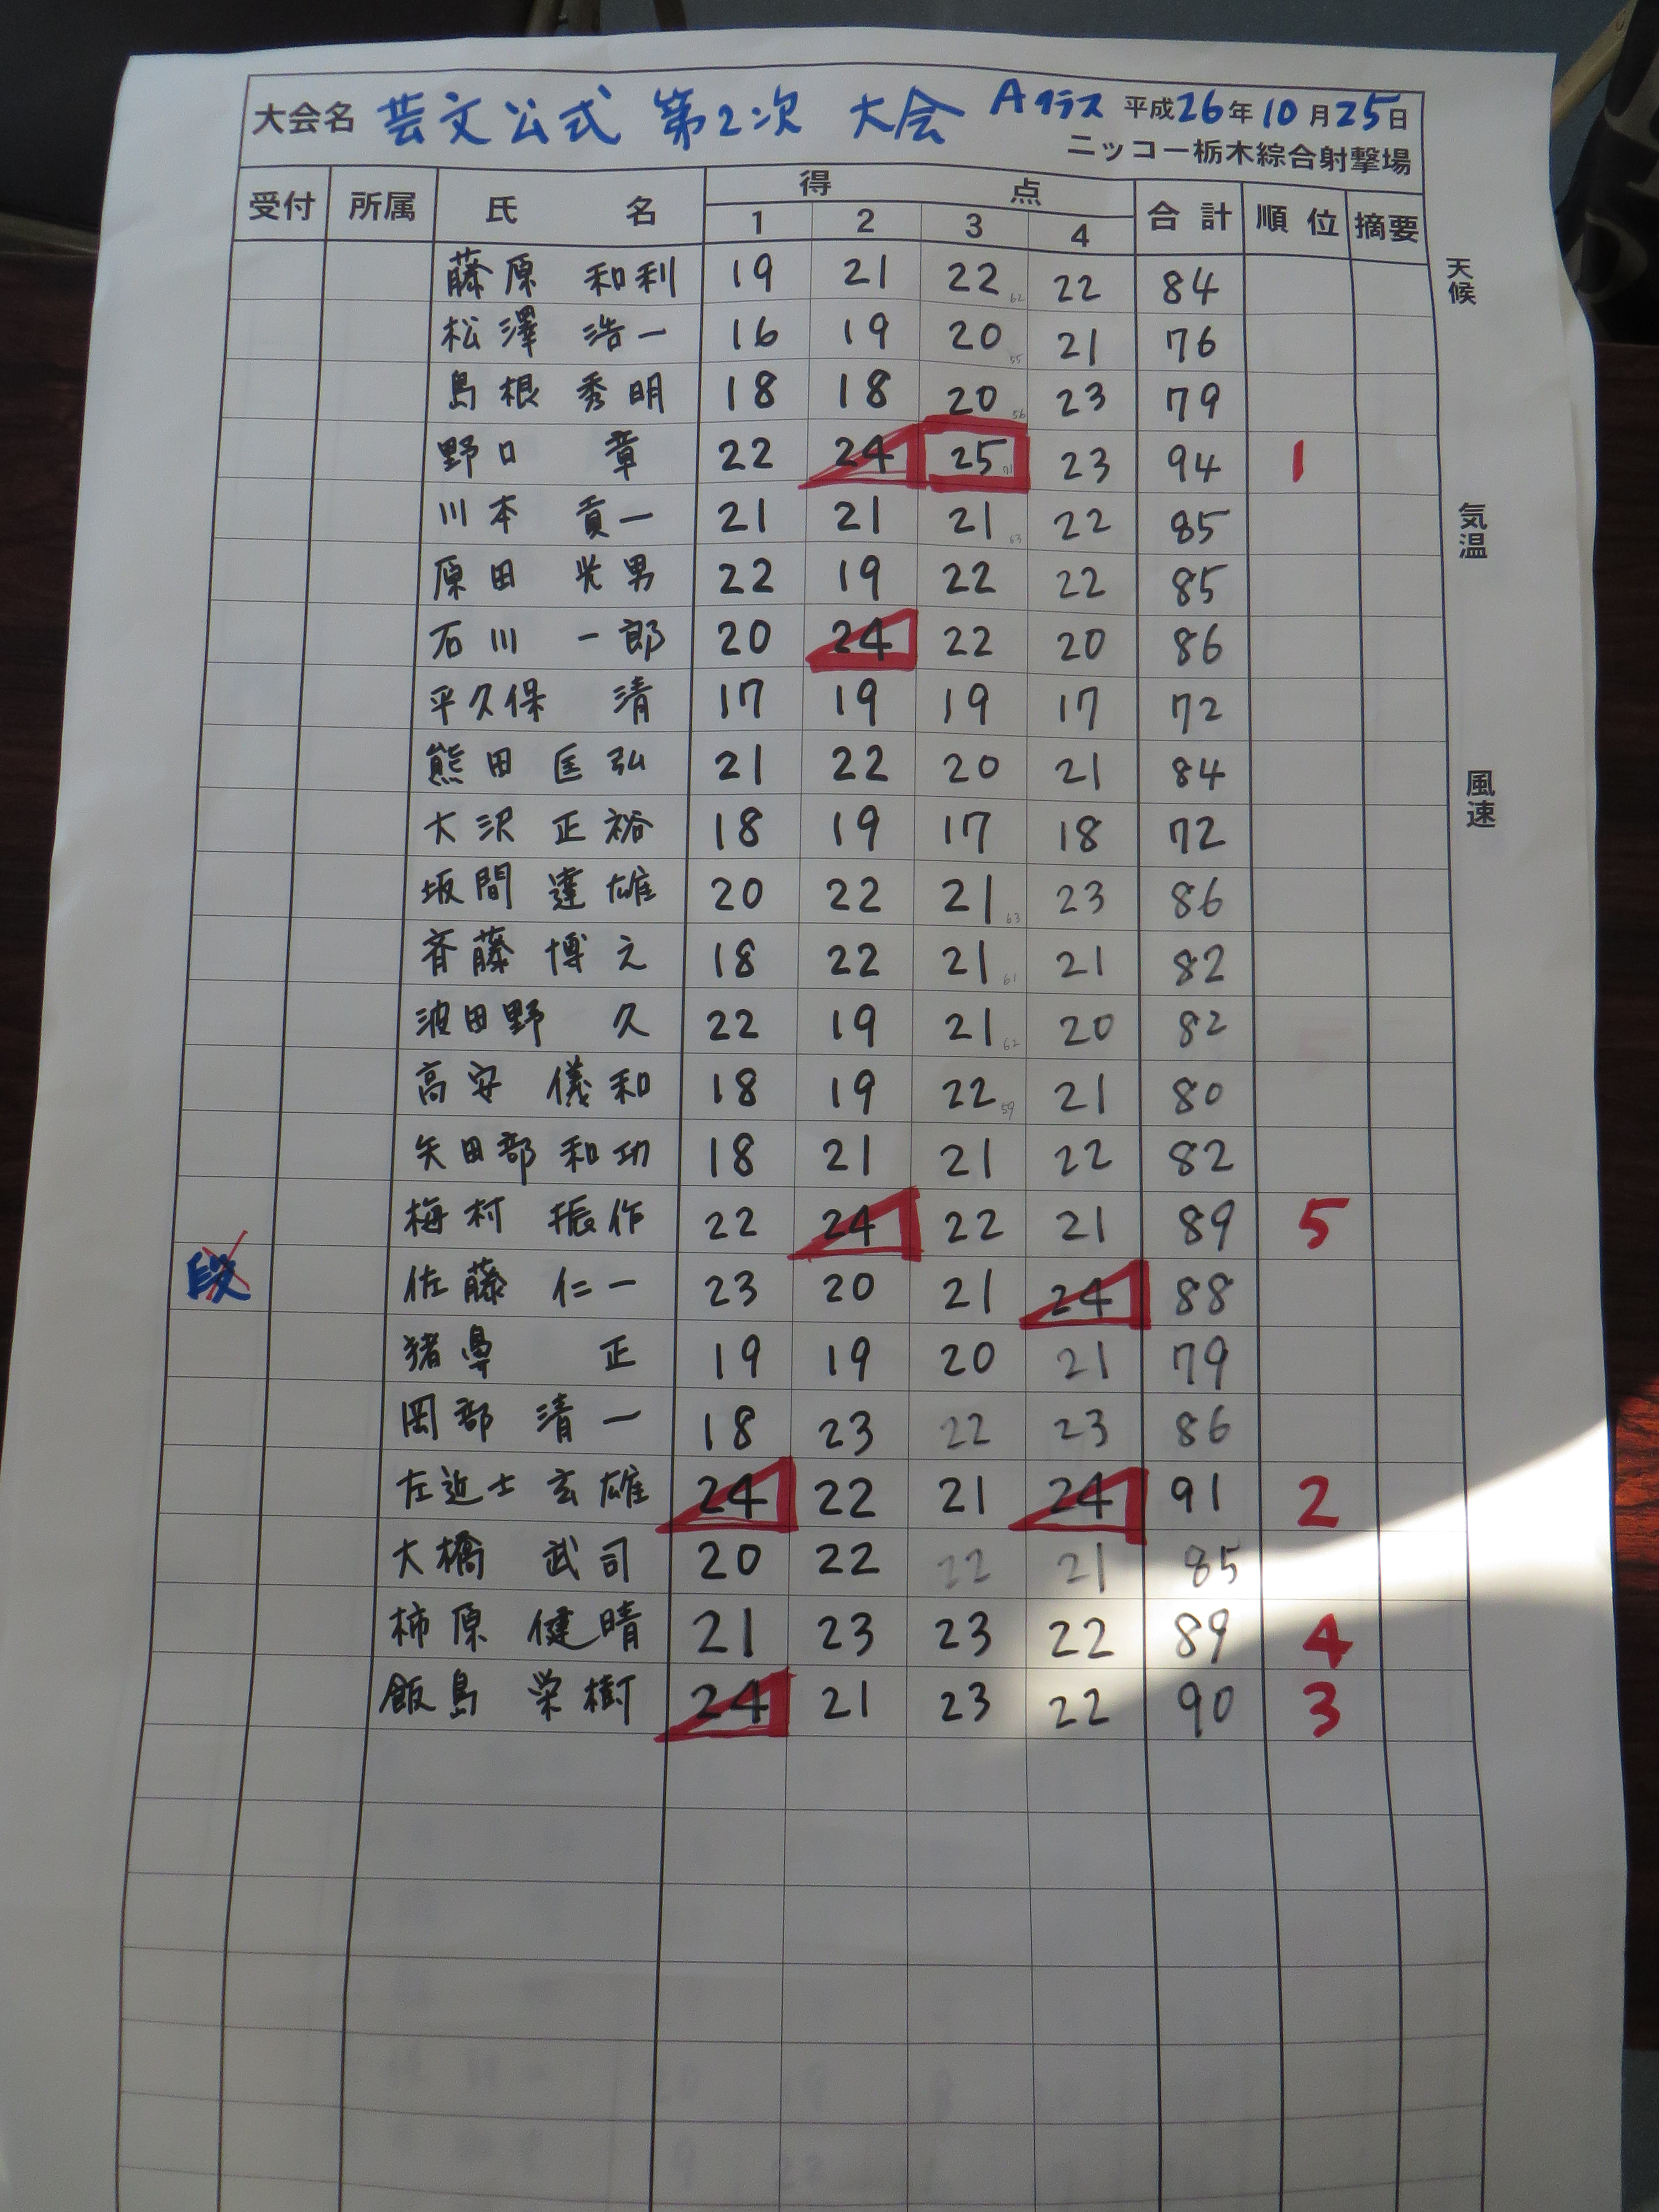 大会名 芸文公式 第2次 大会 Aクラス 平成26年10月25日
ニッコー栃木綜合射撃場
受付 所属 氏名 得点 合計 順位 摘要
1 2 3 4
藤原 和利 19 21 22 62 22 84
松澤 浩一 16 19 20 55 21 76
島根 秀明 18 18 20 56 23 79
野口 章 22 24 25 71 23 94 1
川本 貢一 21 21 21 63 22 85
原田 光男 22 19 22 22 85
石川 一郎 20 24 22 20 86
平久保 清 17 19 19 17 72
熊田 匡弘 21 22 20 21 84
大沢 正裕 18 19 17 18 72
坂間 達雄 20 22 21 63 23 86
斉藤 博之 18 22 21 61 21 82
波田野 久 22 19 21 62 20 82
高安 儀和 18 19 22 59 21 80
矢田部 和功 18 21 21 22 82
梅村 振作 22 24 22 21 89 5
段 佐藤 仁一 23 20 21 24 88
猪 正 19 19 20 21 79
岡部 清一 18 23 22 23 86
左近士 玄雄 24 22 21 24 91 2
大橋 武司 20 22 22 21 85
柿原 健晴 21 23 23 22 89 4
飯島 栄樹 24 21 23 22 90 3
天候
気温
風速